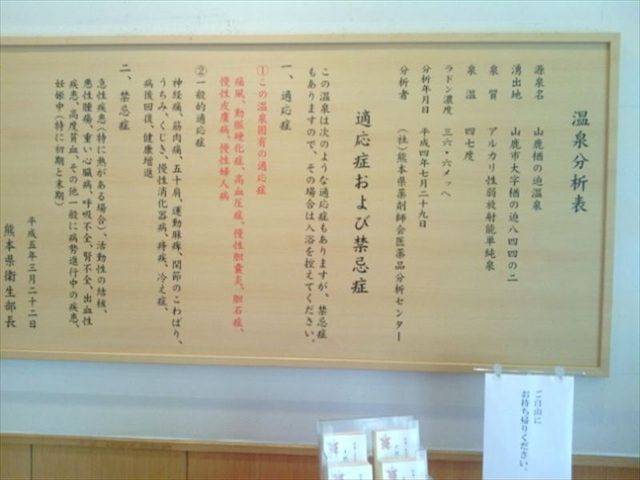 温泉分析表
源泉名　山鹿楢の迫温泉
湧出地　山鹿市大字楢の迫八四四の二
泉質　アルカリ性弱放射能単純泉
泉温　四七度
ラドン濃度　三六・六メッヘ
分析年月日　平成四年七月二十九日
分析者　(社)熊本県薬剤師会医薬品分析センター
適応症および禁忌症
この温泉は次のような適応症もありますが、禁忌症
もありますので、その場合は入浴を控えてください。
一、適応症
①この温泉固有の適応症
痛風、動脈硬化症、高血圧症、慢性胆嚢炎、胆石症、
慢性皮膚病、慢性婦人病
②一般的適応症
神経痛、筋肉痛、五十肩、運動麻痺、関節のこわばり、
うちみ、くじき、慢性消化器病、痔疾、冷え症、
病後回復、健康増進
二、禁忌症
急性疾患(特に熱がある場合)、活動性の結核、
悪性腫瘍、重い心臓病、呼吸不全、腎不全、出血性
疾患、高度貧血、その他一般に病勢進行中の疾患、
妊娠中(特に初期と末期)
平成五年三月二十二日
熊本県衛生部長
ご自由に
お持ち帰りください。